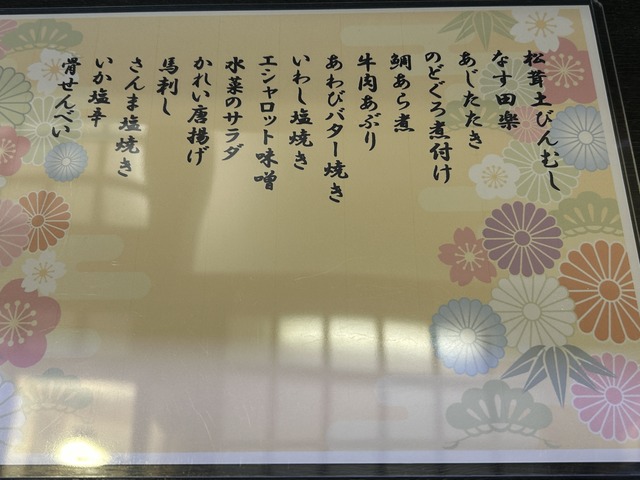 松茸土びんむし
なす田楽
あじたたき
のどぐろ煮付け
鯛あら煮
牛肉あぶり
あわびバター焼き
いわし塩焼き
エシャロット味噌
水菜のサラダ
かれい唐揚げ
馬刺し
さんま塩焼き
いか塩辛
骨せんべい